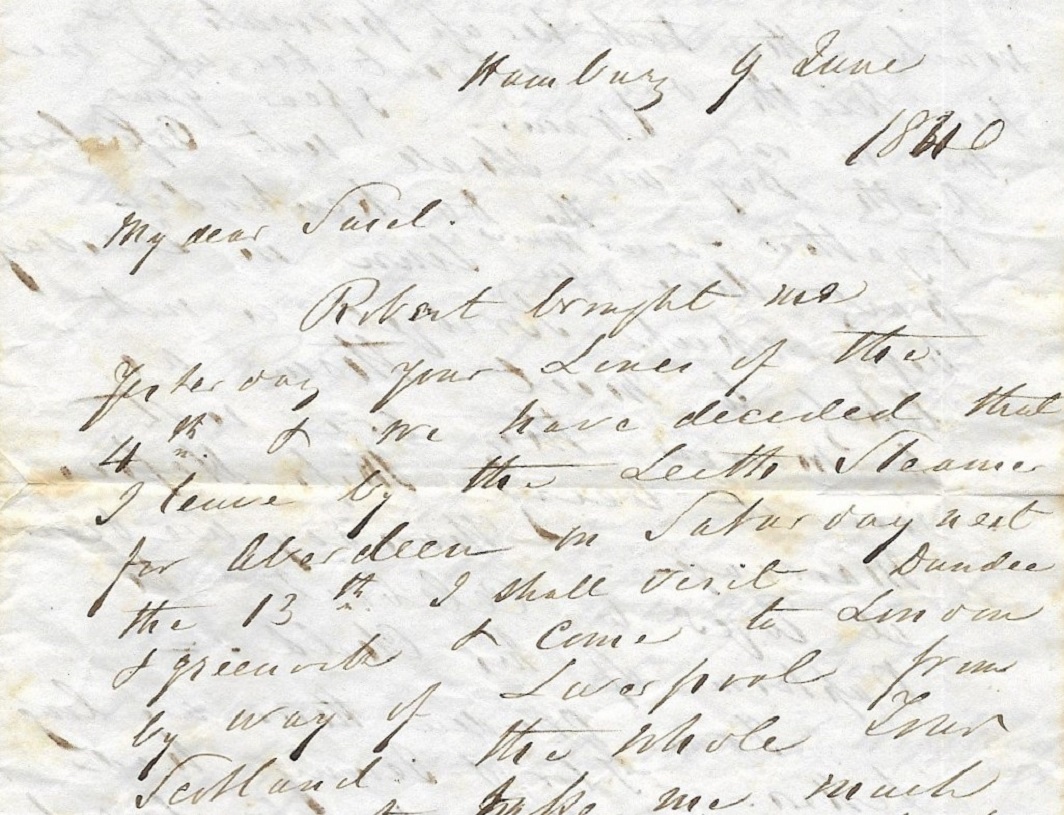 Hamburg 9 June
1840
My dear
Robert brought me
Yesterday your Lines of the
4th. & we have decided that
I leave by the Leith Steamer
for Aberdeen on Saturday next
the 13th I shall visit Dundee
& greenock & Come to London
by way of Liverpool from
Scotland. the whole Tour
me much